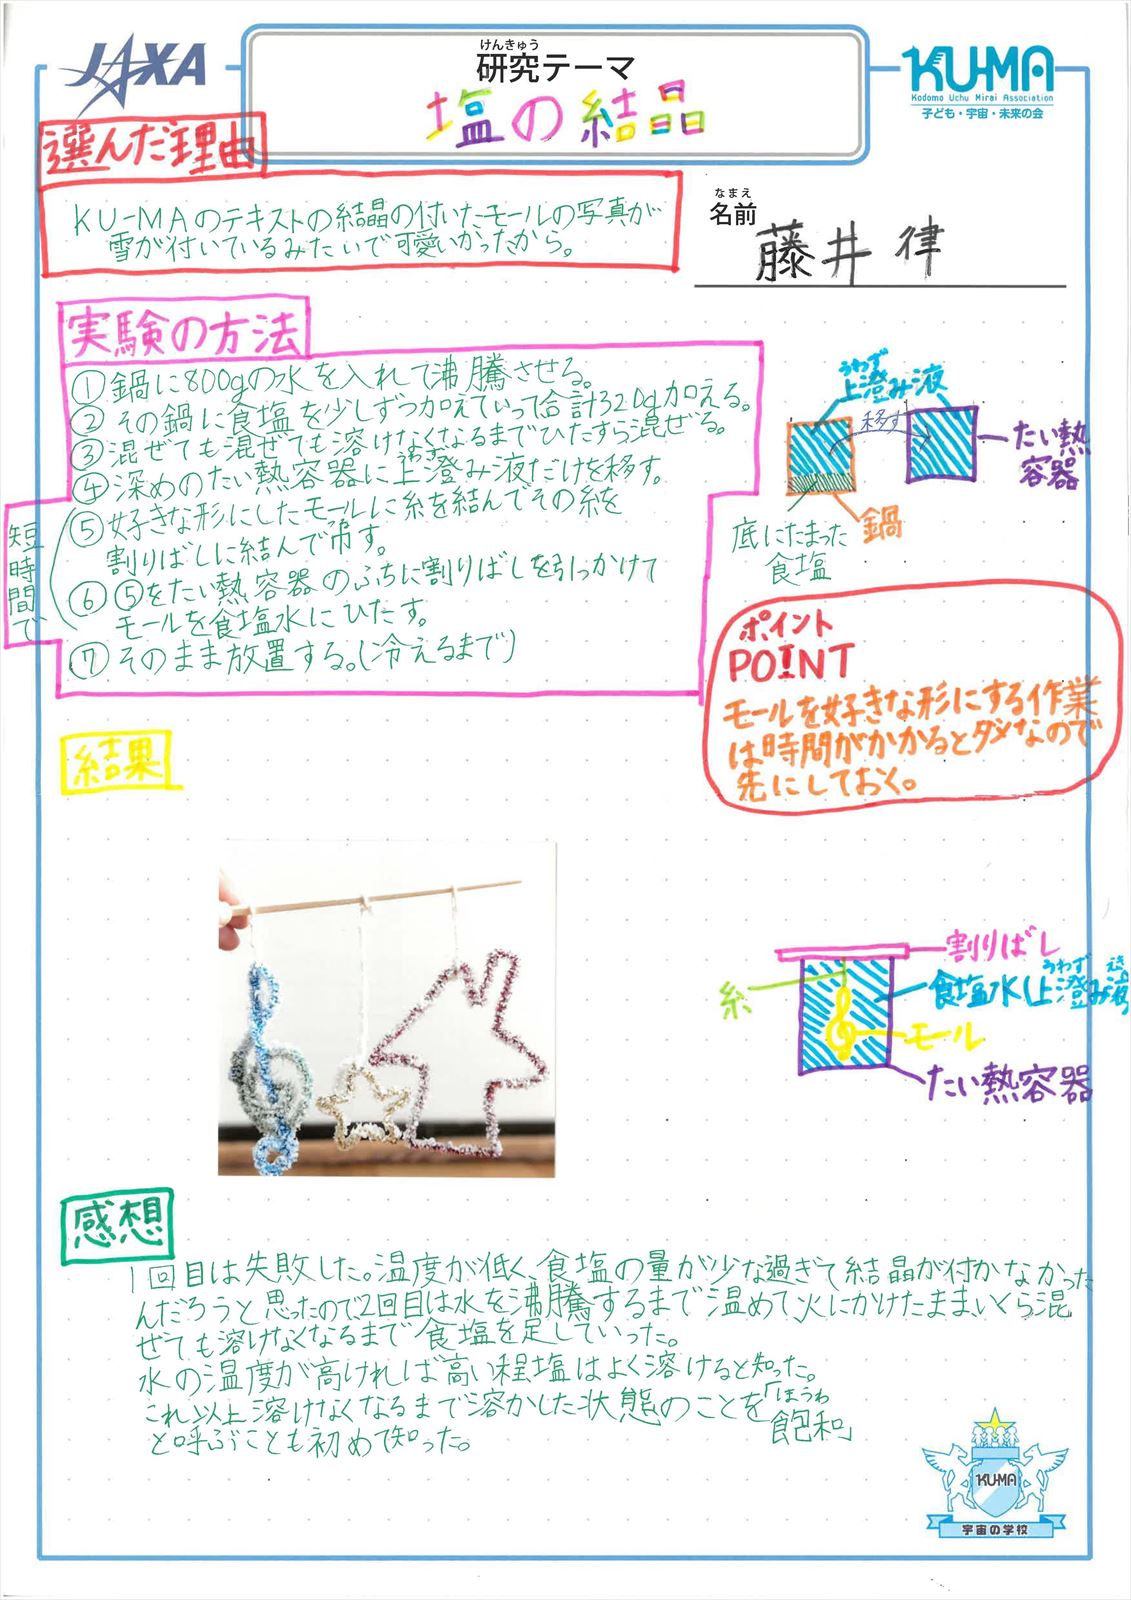 JAXA
けんきゅう
研究テーマ
塩の結晶
KU-MA
Kodomo Uchu Mirai Association
子ども・宇宙・未来の会
選んだ理由
KU-MAのテキストの結晶の付いたモールの写真が
雪が付いているみたいで可愛いかったから。
なまえ
名前
藤井 律
実験の方法
①鍋に800gの水を入れて沸騰させる。
②その鍋に食塩を少しずつ加えていって合計320g加える。
③混ぜても混ぜても溶けなくなるまでひたすら混ぜる。
うわず
④深めのたい熱容器に上澄み液だけを移す。
短時間で
⑤好きな形にしたモールに糸を結んでその糸を
割りばしに結んで吊す。
⑥⑤をたい熱容器のふちに割りばしを引っかけて
モールを食塩水にひたす。
⑦そのまま放置する。(冷えるまで)
うわず
上澄み液
移す
たい熱
容器
鍋
底にたまった
食塩
ポイント
POINT
モールを好きな形にする作業
は時間がかかるとダメなので
先にしておく。
結果
割りばし
うわず えき
食塩水(上澄み液)
糸
モール
たい熱容器
感想
1回目は失敗した。温度が低く、食塩の量が少な過ぎて結晶が付かなかった
んだろうと思ったので2回目は水を沸騰するまで温めて火にかけたまま、いくら混
ぜても溶けなくなるまで食塩を足していった。
水の温度が高ければ高い程塩はよく溶けると知った。
これ以上溶けなくなるまで溶かした状態のことを「飽和」
ほうわ
と呼ぶことも初めて知った。
KU-MA
宇宙の学校